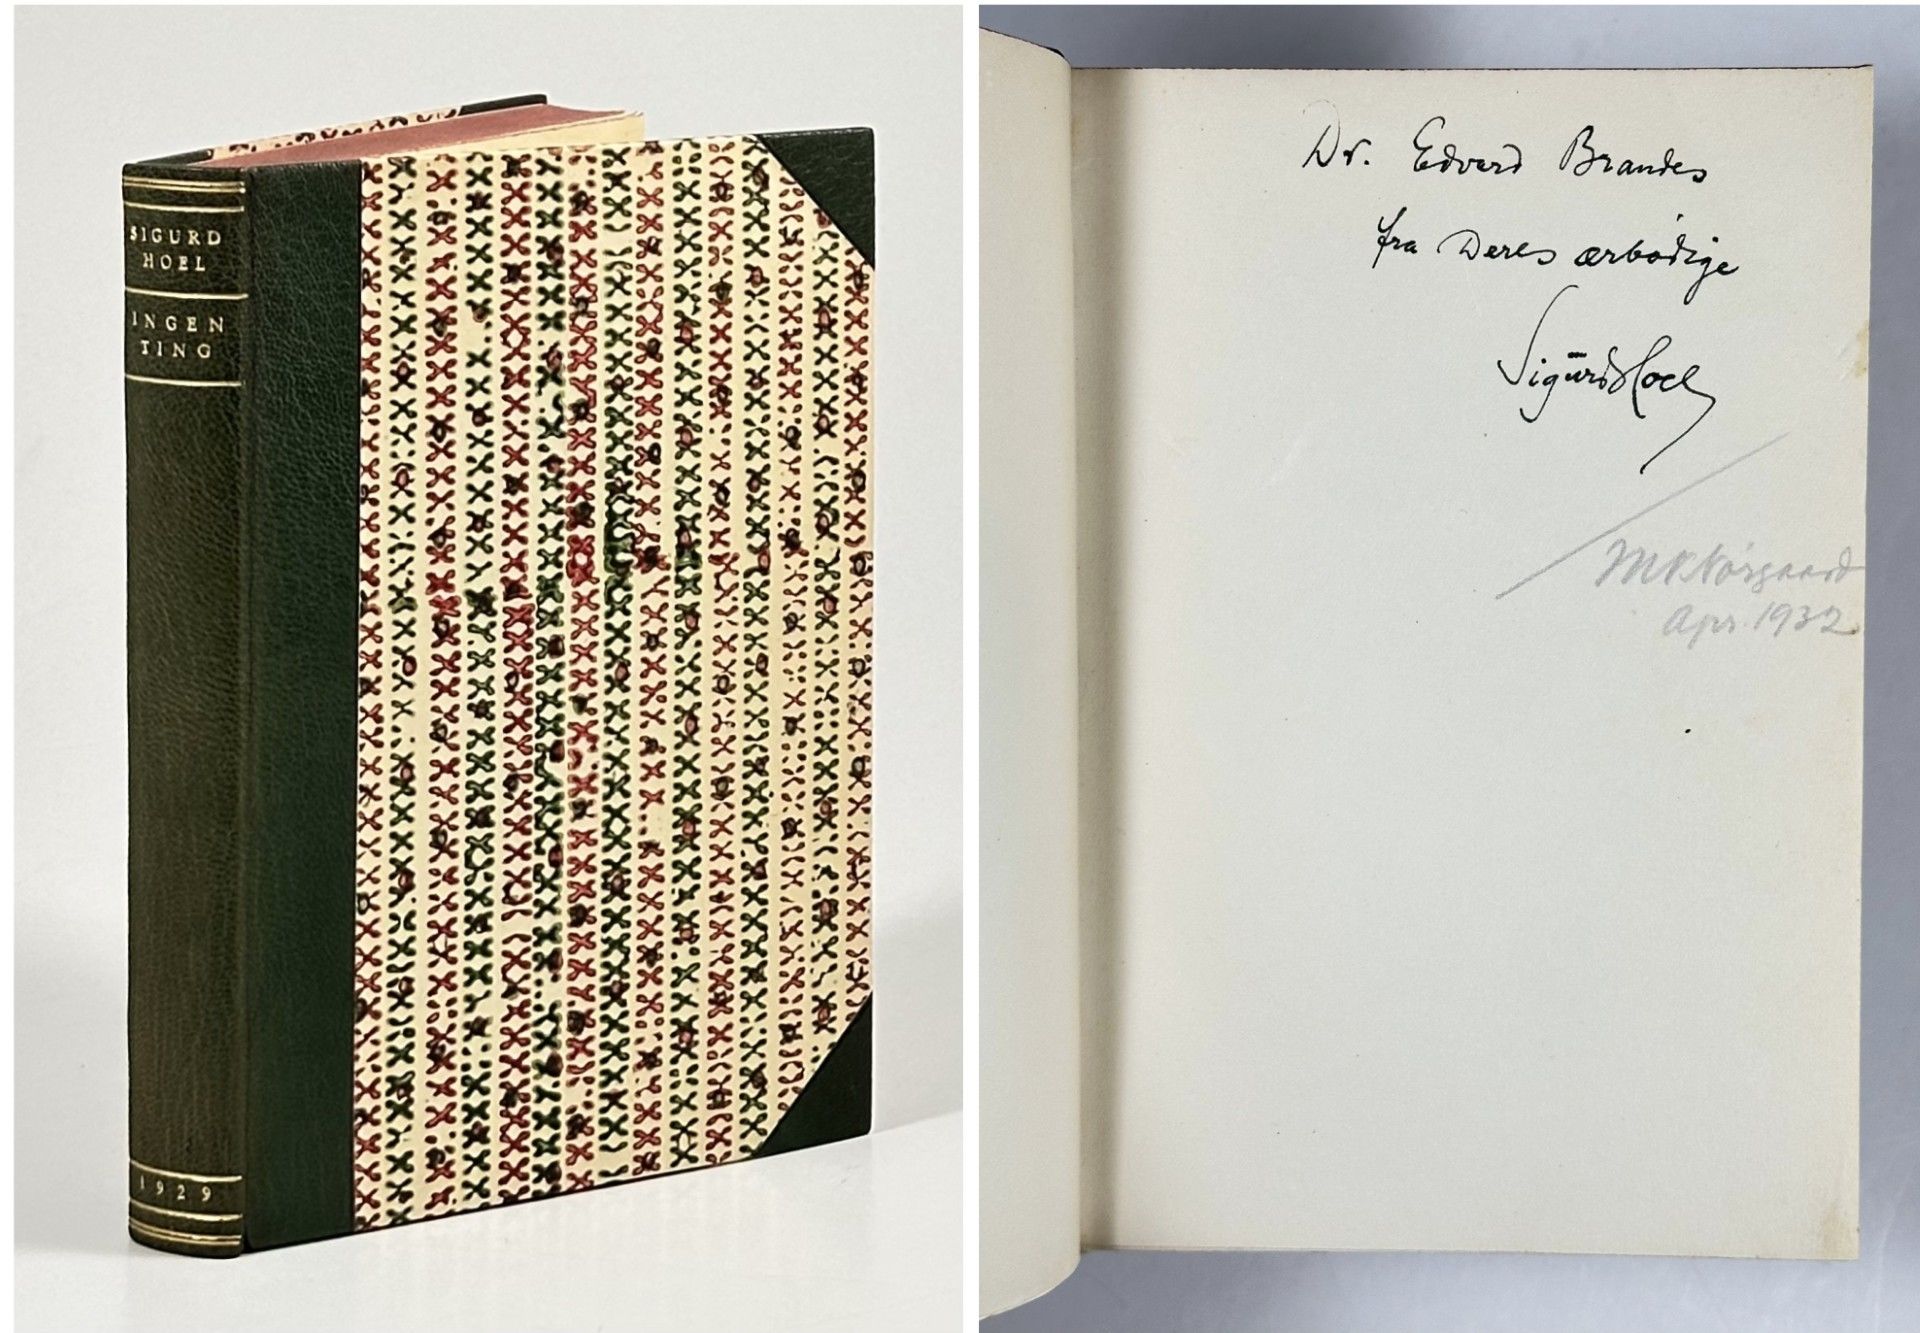 SIGURD
HOEL
INGEN
TING
1929
Dr. Edvard Brandes
fra Deres ærbødige
Sigurd Hoel
Nørgaard
Apr. 1932